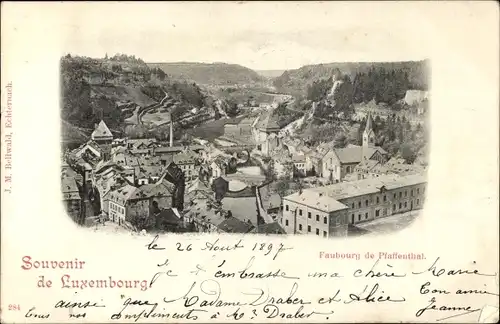 J. M. Bellwald, Echternach.
Faubourg de Pfaffenthal.
Souvenir
de Luxembourg
le 26 Août 1897
Je t'embrasse ma chère Marie
ainsi que Madame Draber et Alice
mes compliments à Mr Draber.
Ton amie
Jeanne
284